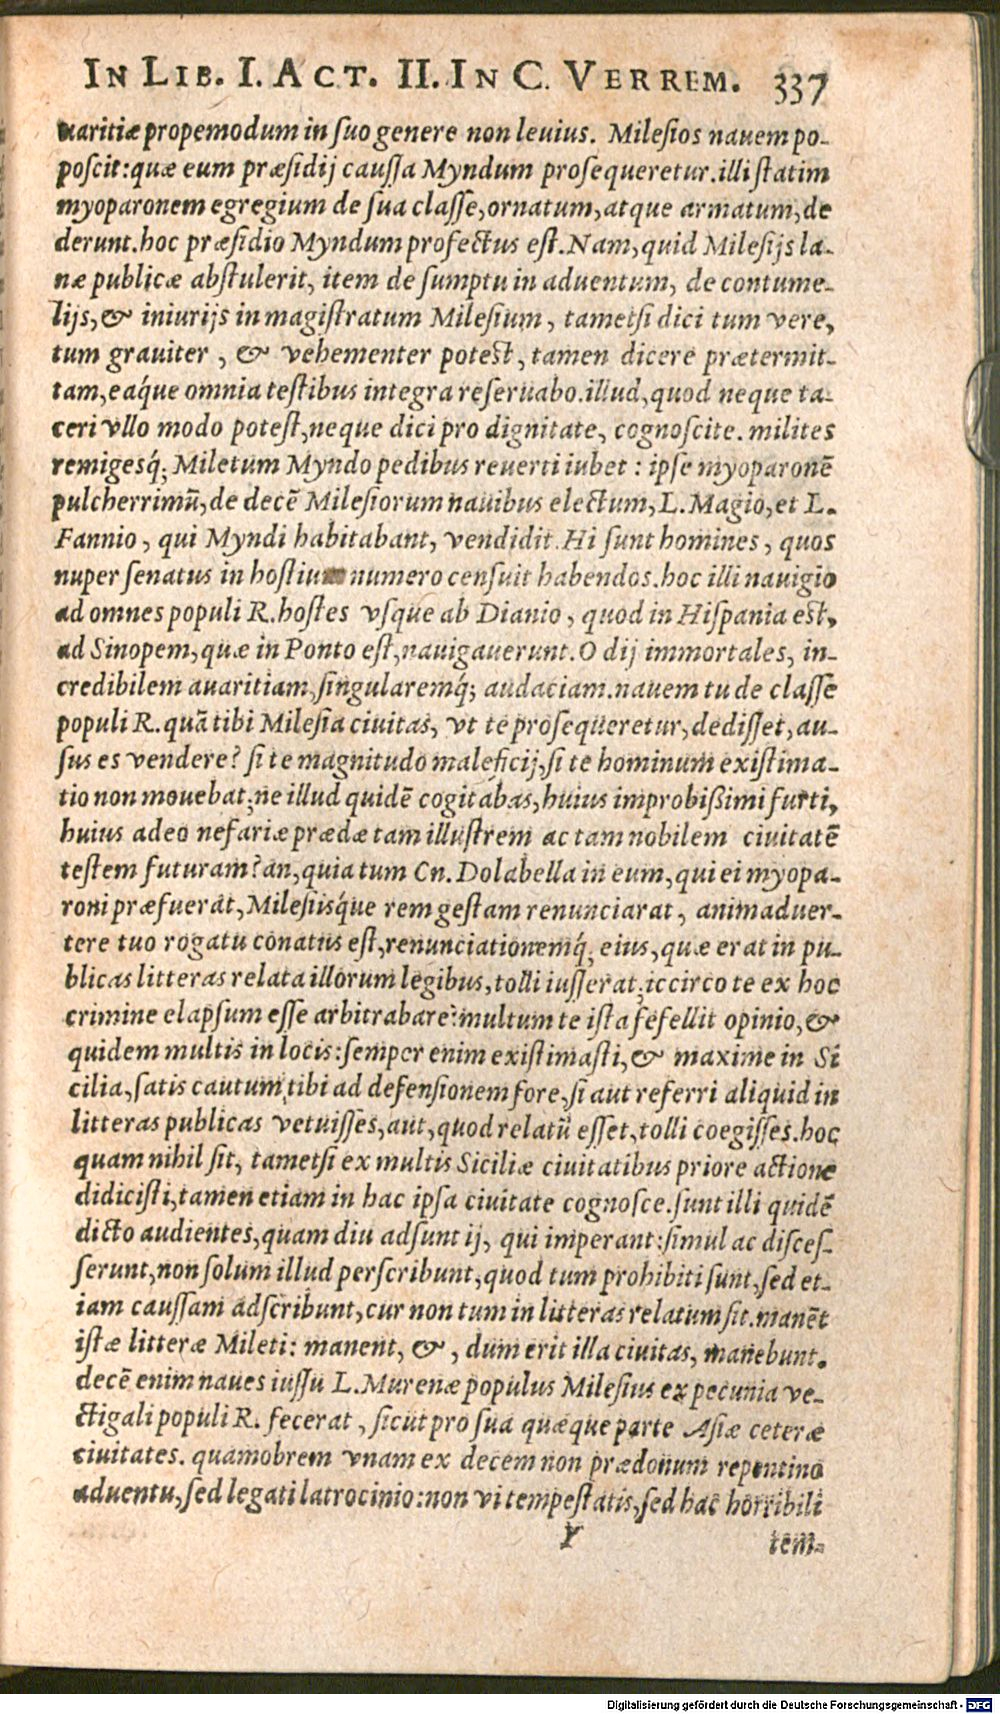 IN LIB. I. ACT. II. IN C. VERREM. 337
uaritiæ propemodum in suo genere non leuius. Milesios nauem po-
poscit: quæ eum præsidij caussa Myndum prosequeretur. illi statim
myoparonem egregium de sua classe, ornatum, atque armatum, de
derunt. hoc præsidio Myndum profectus est. Nam, quid Milesijs la-
næ publicæ abstulerit, item de sumptu in aduentum, de contume-
lijs, & iniurijs in magistratum Milesium, tametsi dici tum vere,
tum grauiter, & vehementer potest, tamen dicere prætermit-
tam, eaq́ue omnia testibus integra reseruabo. illud, quod neque ta-
ceri vllo modo potest, neque dici pro dignitate, cognoscite. milites
remigesq́; Miletum Myndo pedibus reuerti iubet: ipse myoparonē
pulcherrimū, de decē Milesiorum nauibus electum, L. Magio, et L.
Fannio, qui Myndi habitabant, vendidit. Hi sunt homines, quos
nuper senatus in hostium numero censuit habendos. hoc illi nauigio
ad omnes populi R. hostes vsque ab Dianio, quod in Hispania est,
ad Sinopem, quæ in Ponto est, nauigauerunt. O dij immortales, in-
credibilem auaritiam, singularemq́; audaciam. nauem tu de classe
populi R. quā tibi Milesia ciuitas, vt te prosequeretur, dedisset, au-
sus es vendere? si te magnitudo maleficij, si te hominum existima-
tio non mouebat; ne illud quidē cogitabas, huius improbißimi furti,
huius adeo nefariæ prædæ tam illustrem ac tam nobilem ciuitatē
testem futuram? an, quia tum Cn. Dolabella in eum, qui ei myopa-
roni præfuerat, Milesiisq́ue rem gestam renunciarat, animaduer-
tere tuo rogatu conatus est, renunciationemq́; eius, quæ erat in pu-
blicas litteras relata illorum legibus, tolli iusserat; iccirco te ex hoc
crimine elapsum esse arbitrabare? multum te ista fefellit opinio, &
quidem multis in locis: semper enim existimasti, & maxime in Si
cilia, satis cautum tibi ad defensionem fore, si aut referri aliquid in
litteras publicas vetuisses, aut, quod relatū esset, tolli coegisses. hoc
quam nihil sit, tametsi ex multis Siciliæ ciuitatibus priore actione
didicisti, tamen etiam in hac ipsa ciuitate cognosce. sunt illi quidē
dicto audientes, quam diu adsunt ij, qui imperant: simul ac disces-
serunt, non solum illud perscribunt, quod tum prohibiti sunt, sed et-
iam caussam adscribunt, cur non tum in litteras relatum sit. manēt
istæ litteræ Mileti: manent, &, dum erit illa ciuitas, manebunt.
decē enim naues iussu L. Murenæ populus Milesius ex pecunia ve-
ctigali populi R. fecerat, sicut pro sua quæque parte Asiæ ceteræ
ciuitates. quamobrem vnam ex decem non prædonum repentino
aduentu, sed legati latrocinio: non vi tempestatis, sed hac horribili
Y tem-
Digitalisierung gefördert durch die Deutsche Forschungsgemeinschaft - DFG